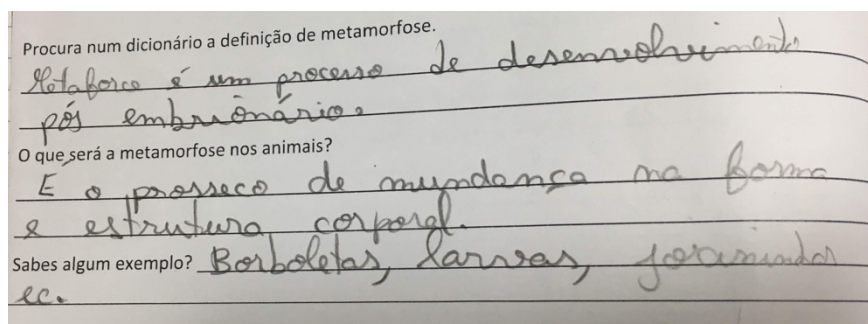 Procura num dicionário a definição de metamorfose.
Metaforce é um processo de desenvolvimento
pós embrionário.
O que será a metamorfose nos animais?
É o prosseco de mundança na forma
e estrutura corporal.
Sabes algum exemplo? Borboletas, larvas, joaninhas
ec.